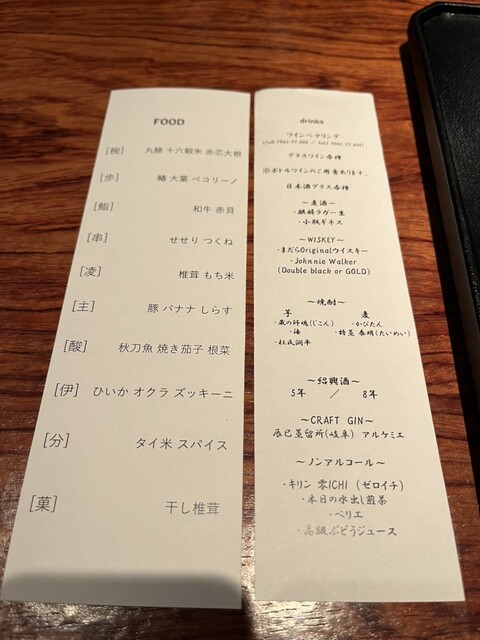 FOOD
[椀] 丸鯵 十六穀米 赤芯大根
[歩] 鰆 大葉 ペコリーノ
[鮨] 和牛 赤貝
[串] せせり つくね
[凌] 椎茸 もち米
[主] 豚 バナナ しらす
[酸] 秋刀魚 焼き茄子 根菜
[伊] ひいか オクラ ズッキーニ
[分] タイ米 スパイス
[菓] 干し椎茸
drinks
ワインペアリング
グラスワイン各種
※ボトルワインのご用意あります。
日本酒グラス各種
〜麦酒〜
・麒麟ラガー生
・小瓶ギネス
〜WISKEY〜
・まだらOriginalウイスキー
・Johnnie Walker
(Double black or GOLD)
〜焼酎〜
芋 麦
・蔵の師魂(しこん) ・かぴたん
・海 ・特蒸 泰明(たいめい)
・杜氏潤平
〜紹興酒〜
5年 / 8年
〜CRAFT GIN〜
辰巳蒸留所(岐阜) アルケミエ
〜ノンアルコール〜
・キリン 零ICHI (ゼロイチ)
・本日の水出し煎茶
・ペリエ
・高級ぶどうジュース